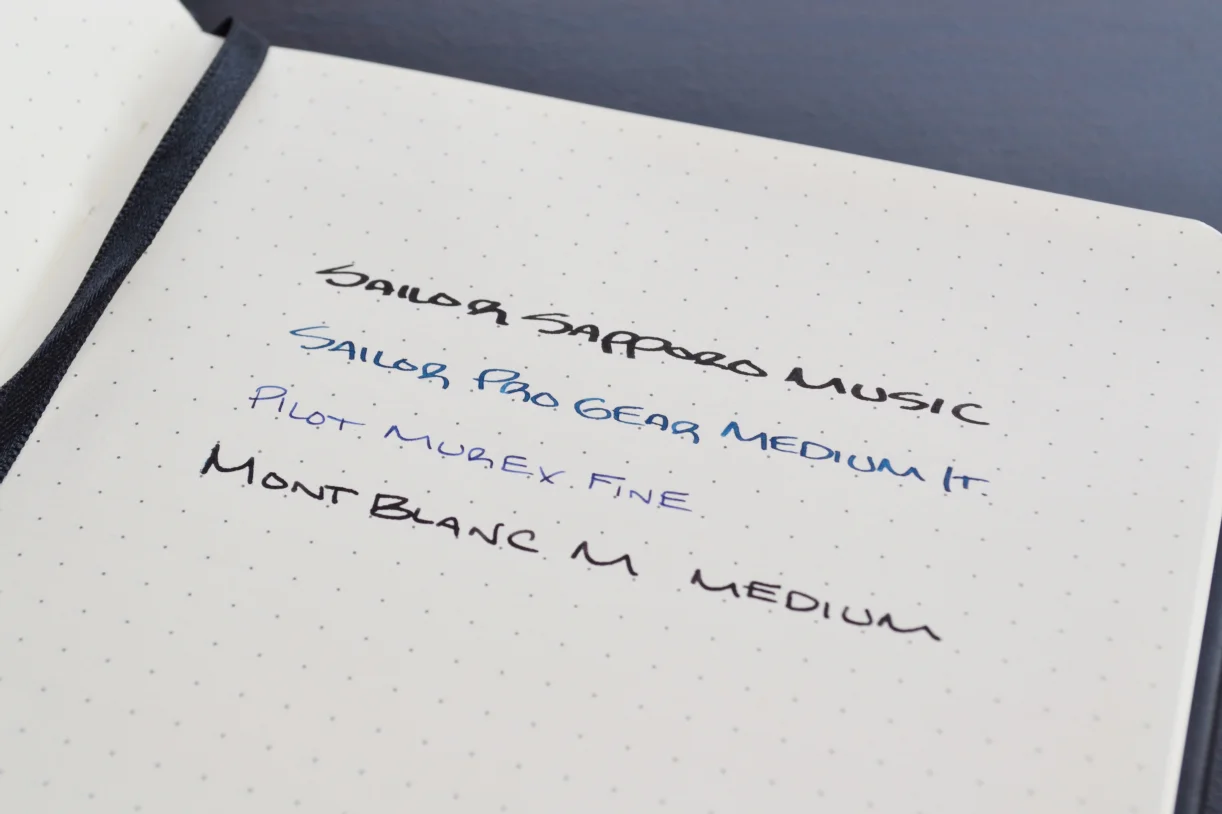 SAILOR SAPPORO MUSIC
SAILOR PRO GEAR MEDIUM IT.
PILOT MUREX FINE
MONT BLANC M MEDIUM